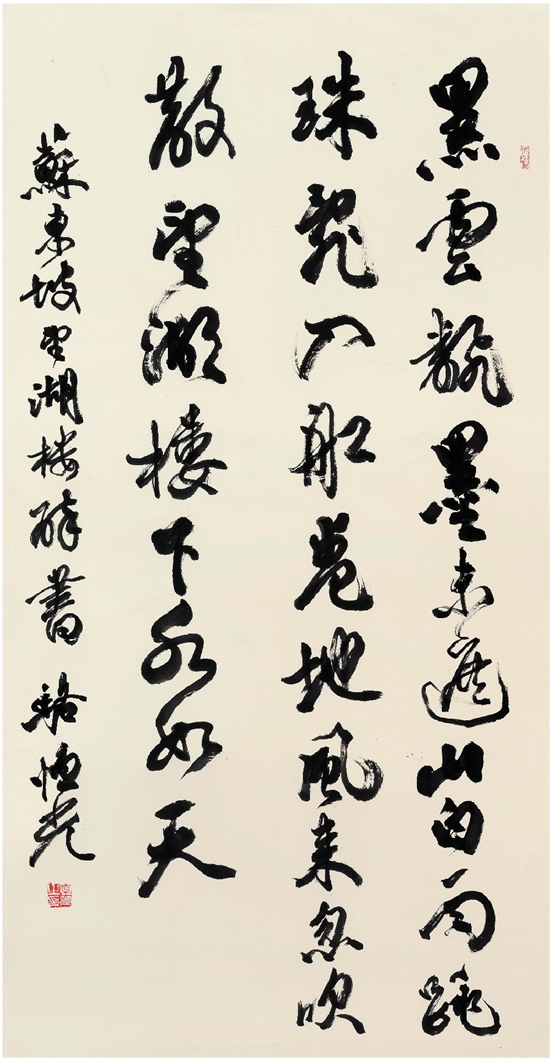 黑雲翻墨未遮山白雨跳
珠亂入船卷地風来忽吹
散望湖樓下水如天
蘇東坡望湖楼醉書 駱恒光